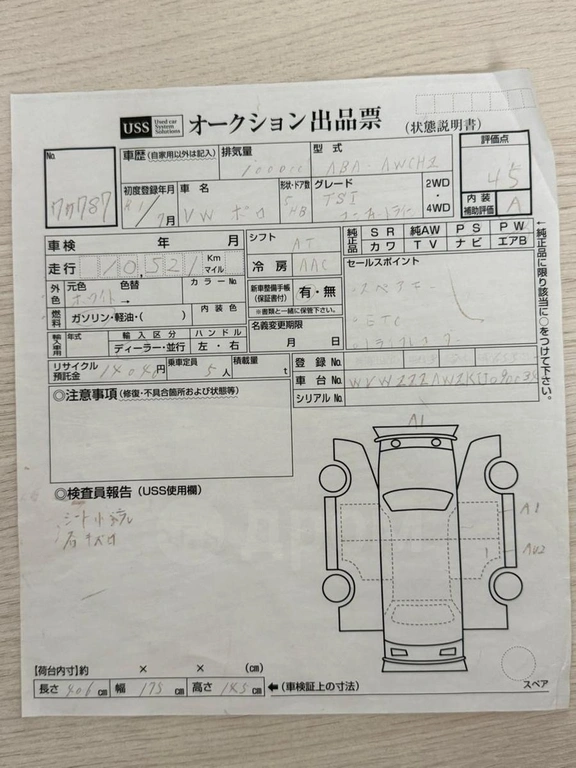 USS Used car System Solutions オークション出品票 (状態説明書)
No. 77787
車歴 (自家用以外は記入) 排気量 1000cc 型式 ABA-AWCHZ
評価点 4.5
初度登録年月 R1/7月 車名 VW ポロ 形状・ドア数 5 HB グレード TSI 2WD・4WD
内装補助評価 A
車検 年 月 シフト AT
純正品 SR 純AW PS PW
カワ TV ナビ エアB
走行 10,521 Km マイル 冷房 AAC
セールスポイント
外色 元色 ホワイト 色替 → カラーNo. 新車整備手帳(保証書付) 有・無
・スペアキー
※書類と一緒に保管下さい。
燃料 ガソリン・軽油・( ) 内装色
・ETC
輸入車用 年式 輸入区分 ハンドル 名義変更期限
ディーラー・並行 左・右 月 日
リサイクル預託金 14040円 乗車定員 5人 積載量 t
登録No.
車台No.
シリアルNo.
←純正品に限り該当に○をつけて下さい。
◎注意事項 (修復・不具合箇所および状態等)
◎検査員報告 (USS使用欄)
A1
A1
AU2
【荷台内寸】約 × × (cm)
長さ 406cm 幅 175cm 高さ 145cm ←(車検証上の寸法)
スペア